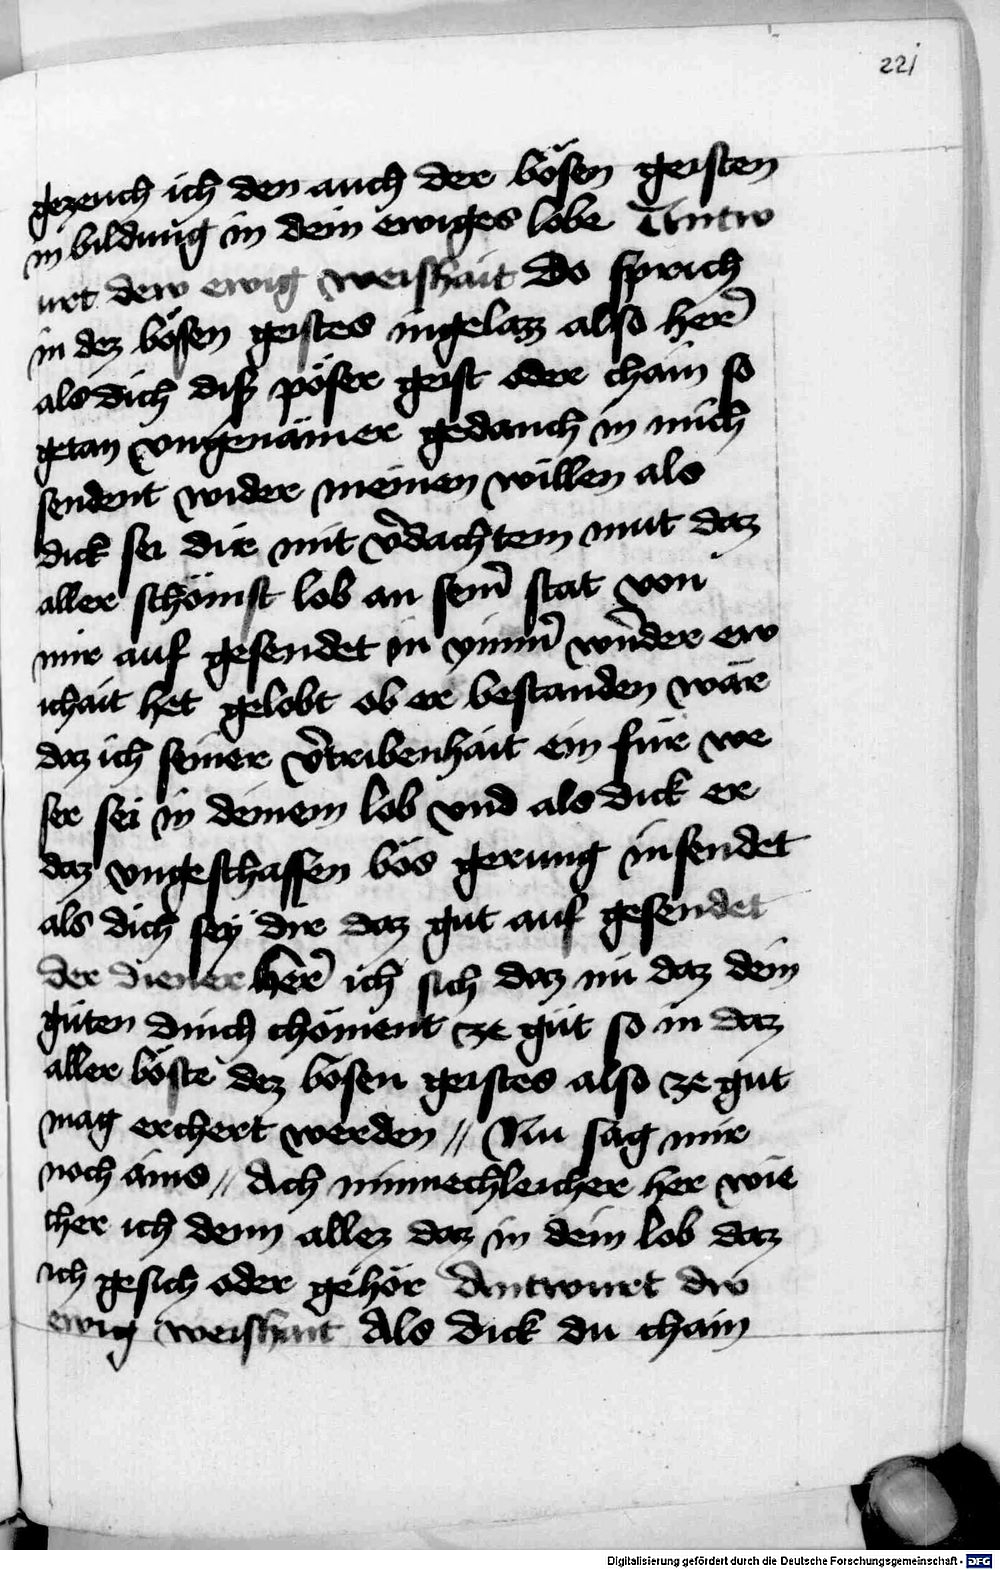 221
gezeuch ich den auch der bösen geisten
in bildung in dein ewiges lobe Antw
urt dew ewig weishait Do sprich
in dez bösen geistes ingelazz also her̄
als dich diß pöser geist oder chain so
getan vngenämer gedanch in mich
sendent wider meinen willen als
dick sei dir mit v̄dachtem mut daz
aller schönist lob an sein̄ stat von
mir auf gesendet in ymm̄ wn̄der ew
ichait het gelobt ob er bestanden wär
daz ich seiner v̄tribenhait ein für we
ser sei in deinem lob vnd als dick er
daz vngeschaffen bös gerung insendet
als dich sey dir daz gut auf gesendet
der diener her̄ ich sich daz nu daz dein
güten dinch chöment ze güt so in daz
aller böste dez bösen geistes also ze gut
mag erchert werden // Nu sag mir
noch äins // Ach minnechleicher her wie
cher ich denn allez daz in dein lob daz
ich gesich oder gehör Antwurt dw
ewig weishait Als dick du chain
Digitalisierung gefördert durch die Deutsche Forschungsgemeinschaft - DFG